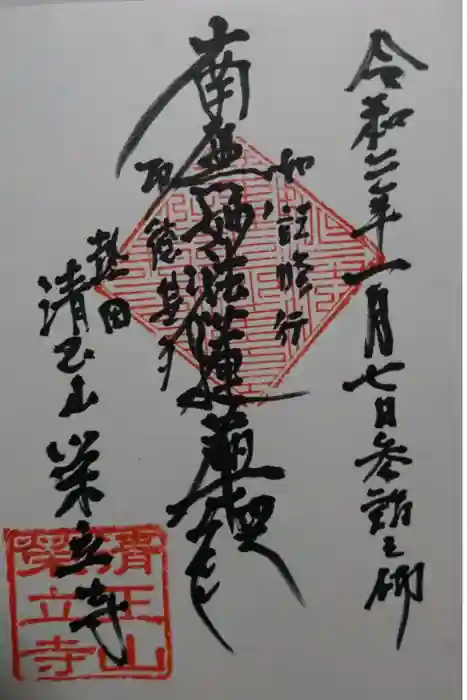 令和二年一月七日参詣之砌
如説修行
南無妙法蓮華経
所徳甚多
熱田
清正山 栄立寺
清正山
栄立寺